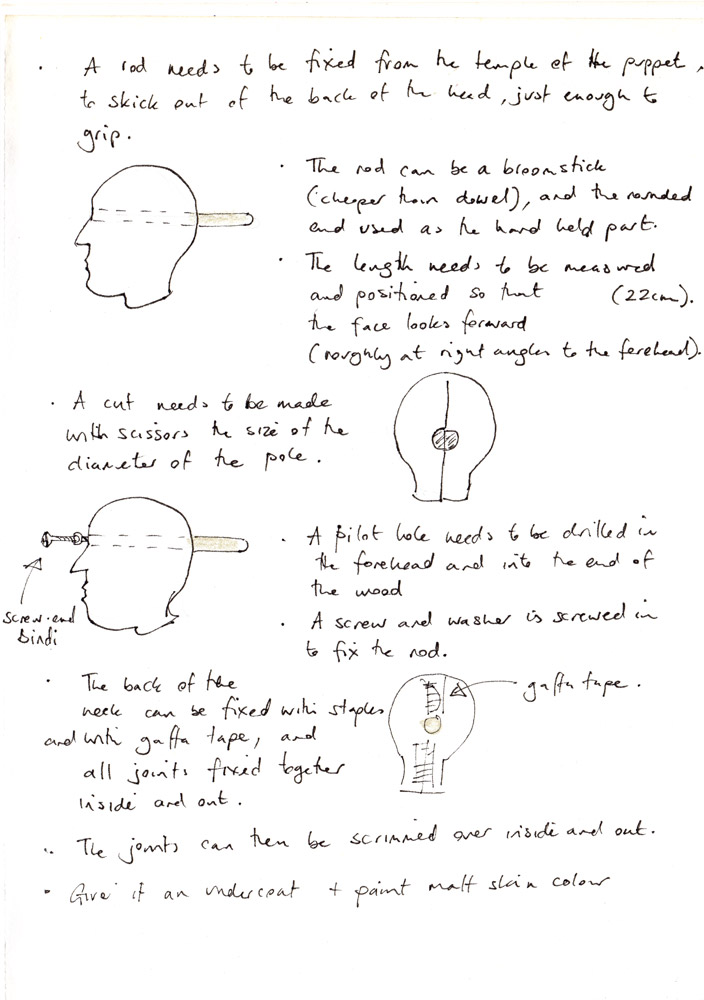 · A rod needs to be fixed from the temple of the puppet,
to skick out of the back of the head, just enough to
grip.
· The rod can be a broomstick
(cheaper than dowel), and the rounded
end used as the hand held part.
· The length needs to be measured
and positioned so that (22cm).
the face looks forward
(roughly at right angles to the forehead).
· A cut needs to be made
with scissors the size of the
diameter of the pole.
· A pilot hole needs to be drilled in
the forehead and into the end of
the wood
· A screw and washer is screwed in
to fix the rod.
screw-end
Bindi
· The back of the
neck can be fixed with staples
and with gaffa tape, and
all joints fixed together
inside and out.
gaffa tape.
· The joints can then be scrimmed over inside and out.
· Give it an undercoat + paint matt skin colour